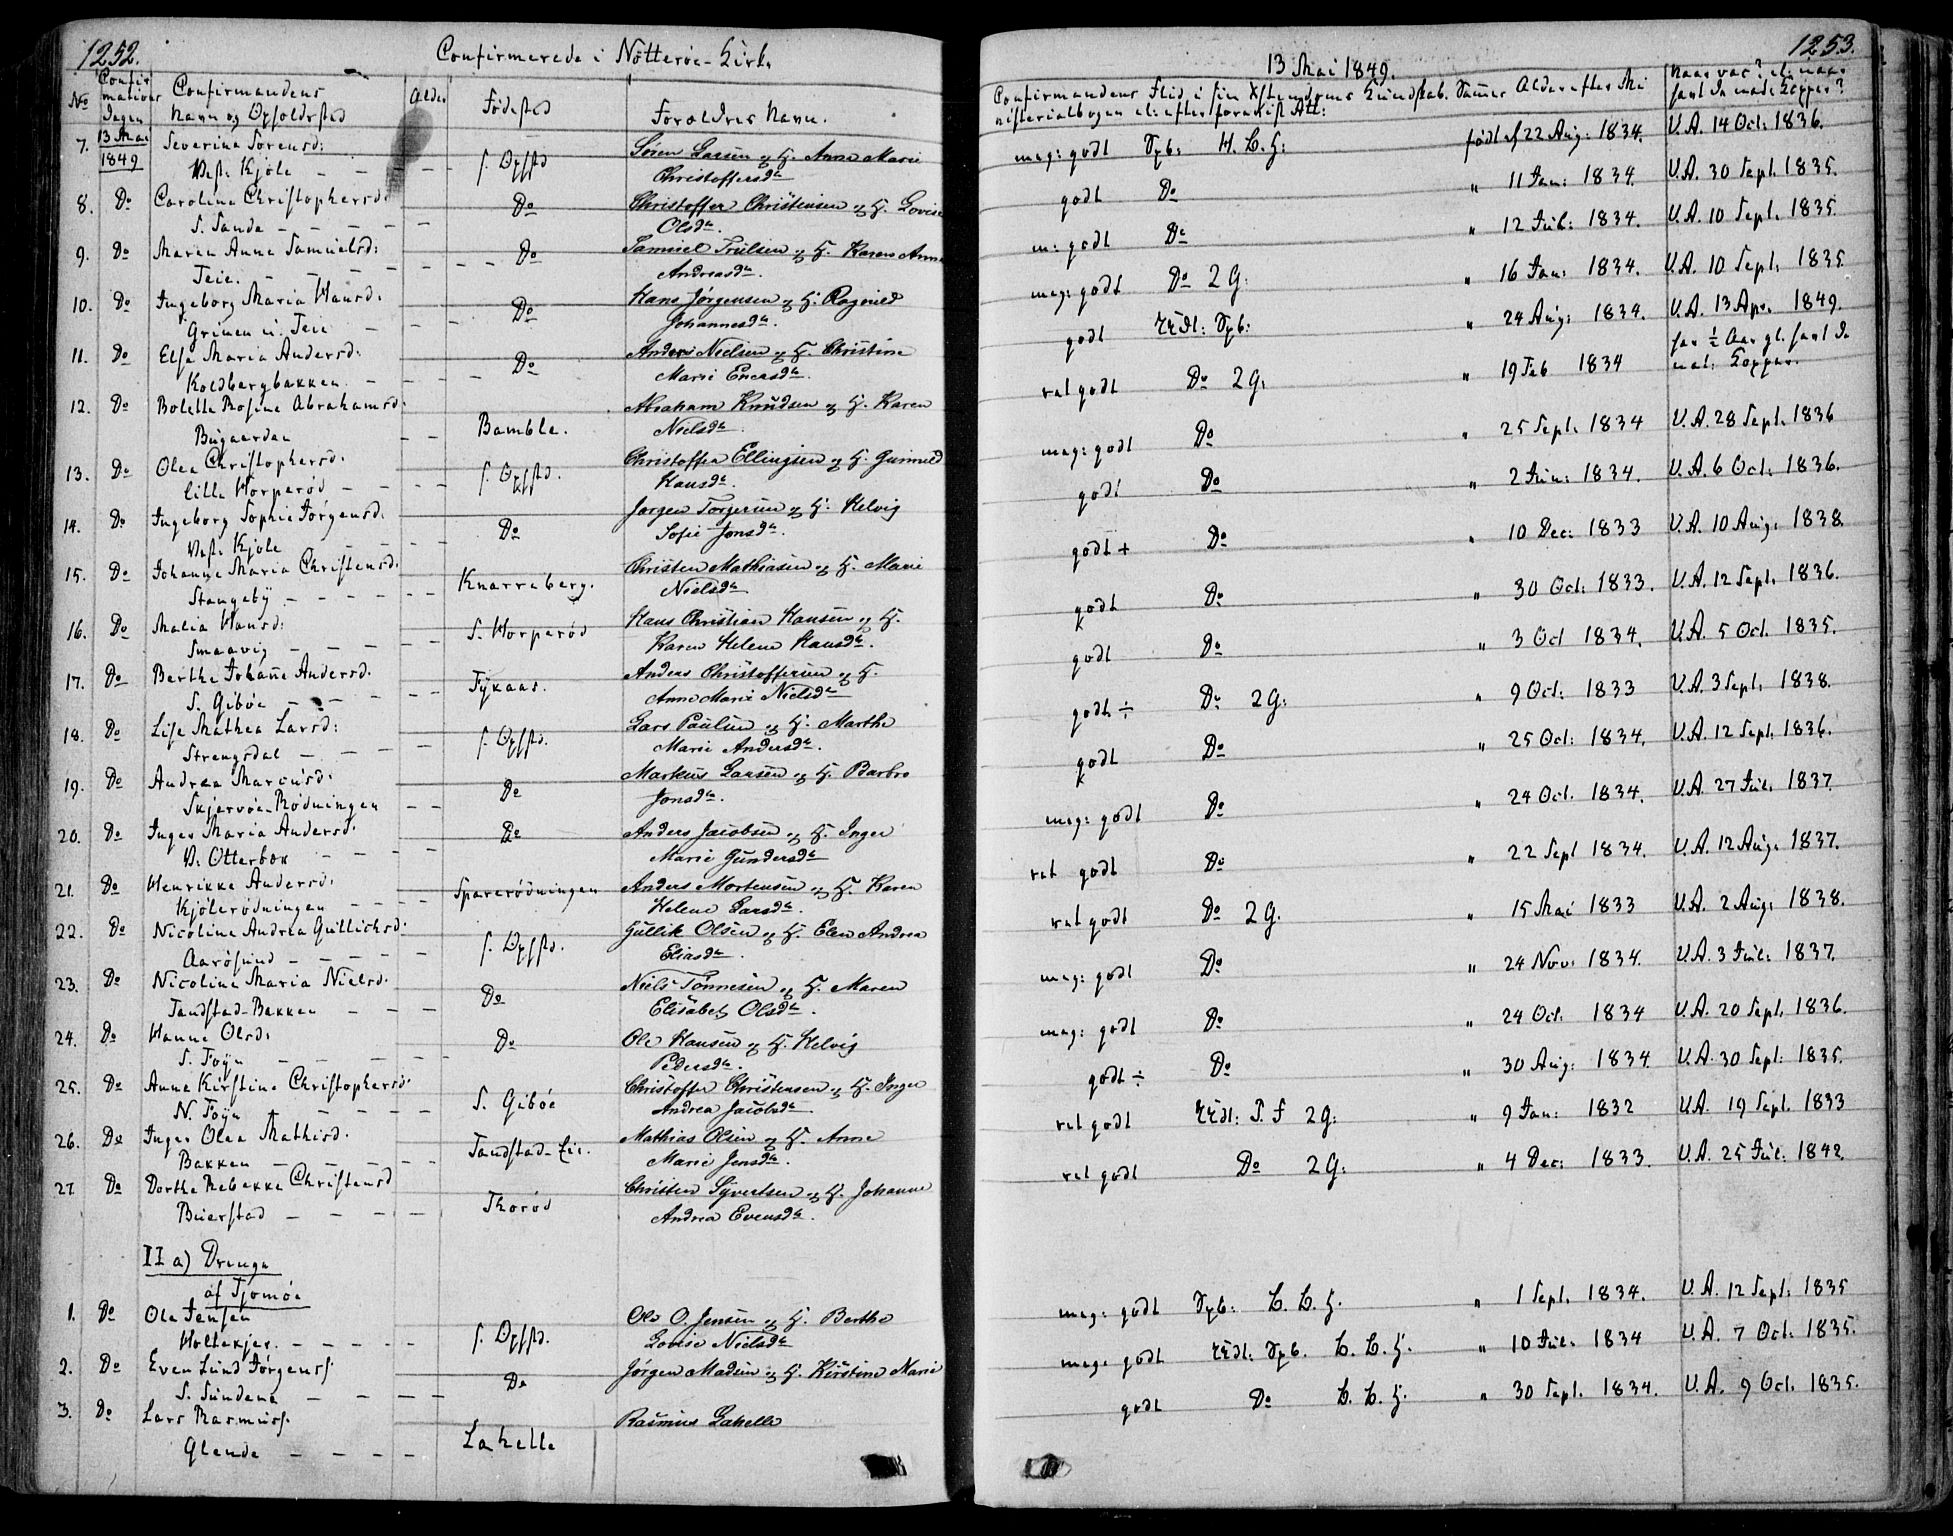 1252.
Confirmerede i Nötteröe Kirke
No
Confirmations Dagen
Confirmandens Navn og Opholdssted
Alder
Fødested
Forældres Navn.
7. 13 Mai 1849 Severine Sörensd: Søren Larsen og H. Anne Marie
Vest. Kjöle - - - - - f. Opfstd Christoffersdr
8. Do Caroline Christophersd: Do Christoffer Christensen og H. Lovise
S. Sande - - - - - Olsdr.
9. Do Maren Anne Samuelsd: Do Samuel Trulsen og H. Karen Anne
Teie. - - - - - - Andreasdr.
10. Do Ingeborg Maria Hansd: Do Hans Jørgensen og H. Ragnild
Grinen u. Teie - - - Johannesdr.
11. Do Else Maria Andersd: Do Anders Nielsen og H. Christine
Koldbergbakken. - - - - Marie Enersdr.
12. Do Bolette Rosine Abrahamsd: Abraham Knudsen og H. Karen
Bugaarden - - Bamble. Nielsdr.
13. Do Olea Christophersd. f. Opfstd. Christoffer Ellingsen og H. Gunnild
Lille Horperöd - - - - Hansdr.
14. Do Ingeborg Sophie Jörgensd. Do Jørgen Torgersen og H. Helvig
Vest. Kjöle - - - - Sofie Jonsdr.
15. Do Johanne Maria Christensd. Christen Mathiasen og H. Marie
Stangeby - - - - - - Knarreberg. Nielsdr
16. Do Malia Hansd: S. Horperöd Hans Christian Hansen og H.
Smaavig - - - - - Karen Helene Hansdr.
17. Do Berthe Johañe Andersd. Anders Christoffersen og H.
S. Giböe - - - - Fyxaas. Anne Marie Nielsdr
18. Do Lise Mathea Larsd: f. Opfstd. Lars Paulsen og H. Marthe
Strengsdal - - - - Marie Andersdr.
19. Do Andrea Marcusd: Do Markus Larsen og H. Barbro
Skjervöe-Rödningen - - Jonsdr.
20. Do Inger Maria Andersd. Do Anders Jacobsen og H. Inger
V. Otterbæk - - - - Marie Gundersdr
21. Do Henrikke Andersd. Sparerödningen Anders Mortensen og H. Karen
Kjölerödningen - - - - Helene Larsdr.
22. Do Nicoline Andrea Gullichsd: f. Opfstd. Gullik Olsen og H. Elen Andrea
Aarösund - - - - - Eliasdr.
23. Do Nicoline Maria Nielsd. Do Niels Tönnesen og H. Maren
Tandstad-Bakken - - - Elisabet Olsdr.
24. Do Hanne Olsd: Do Ole Hansen og H. Helvig
S. Foyn - - - - - Pedersdr.
25. Do Anne Kirstine Christophersd: S. Giböe Christoffer Christensen og H. Inger
N. Foyn - - - - Andrea Jacobsdr.
26. Do Inger Olea Mathisd. Tandstad-Eie. Mathias Olsen og H. Anne
Bakken - - - - - Marie Jensdr.
27 Do Dorthe Rebekke Christensd Christen Syvertsen og H. Johanne
Beierstad - - - - - Thoröd Andrea Evensdr.
II a) Drenge
af Tjomöe
1. Do Ole Jensen Ole O. Jensen og H. Berthe
Holtekjer. - - - - - f. Opfstd. Lovise Nielsdr
2. Do Even Lund Jörgens. Do Jørgen Madsen og H. Kirstine Marie
S. Sundene - - - - -
3. Do Lars Rasmus. Rasmus Lahelle
Glende - - - - Lahelle
1253.
13 Mai 1849.
Confirmandens Flid i sin Xstendoms Kundskab. Sammes Alder efter Mi
nisterialbogen el: efter forevist Att:
Naar vac? el: naar
havt de nat: Kopper?
meg: godt Opb: H. L. H: født d 22 Aug: 1834. V.A. 14 Oct: 1836.
godt Do " 11 Jan: 1834. V.A. 30 Sept. 1835.
m: godt Do " 12 Jul: 1834. V.A. 10 Sept. 1835.
meg: godt Do 2 G. " 16 Jan: 1834. V.A. 10 Sept. 1835
godt Opb: " 24 Aug: 1834. V.A. 13 Apr. 1849.
ret godt Do 2 G. " 19 Feb 1834 for ½ Aar gl. havt de
nat: Kopper.
meg: godt Do " 25 Sept. 1834 V.A. 28 Sept. 1836
godt Do " 2 Jun: 1834. V.A. 6 Oct: 1836.
godt + Do " 10 Dec: 1833 V.A. 10 Aug: 1838.
godt Do " 30 Oct: 1833. V.A. 12 Sept. 1836.
godt Do " 3 Oct 1834. V.A. 5 Oct. 1835.
godt ÷ Do 2 G: " 9 Oct: 1833 V.A. 3 Sept. 1838.
godt Do " 25 Oct: 1834. V.A. 12 Sept. 1836.
meg: godt Do " 24 Oct. 1834. V.A. 27 Jul: 1837.
ret godt Do " 22 Sept 1834. V.A. 12 Aug. 1837.
ret godt Do 2 G. " 15 Mai 1833 V.A. 2 Aug: 1838.
meg: godt Do " 24 Nov: 1834. V.A. 3 Jul: 1837.
meg: godt Do " 24 Oct. 1834 V.A. 20 Sept. 1836.
godt ÷ Do " 30 Aug: 1834 V.A. 30 Sept: 1835.
ret godt 2 G: " 9 Jan: 1832 V.A. 19 Sept. 1833
ret godt Do 2 G: " 4 Dec: 1833. V.A. 25 Jul: 1842.
meg: godt Opb: L. L. H. " 1 Sept. 1834. V.A. 12 Sept. 1835
meg: godt Opb. L. L. H. " 10 Jul: 1834 V.A. 7 Oct: 1835.
godt Do L. L. H. " 30 Sept. 1834. V.A. 9 Oct. 1835.